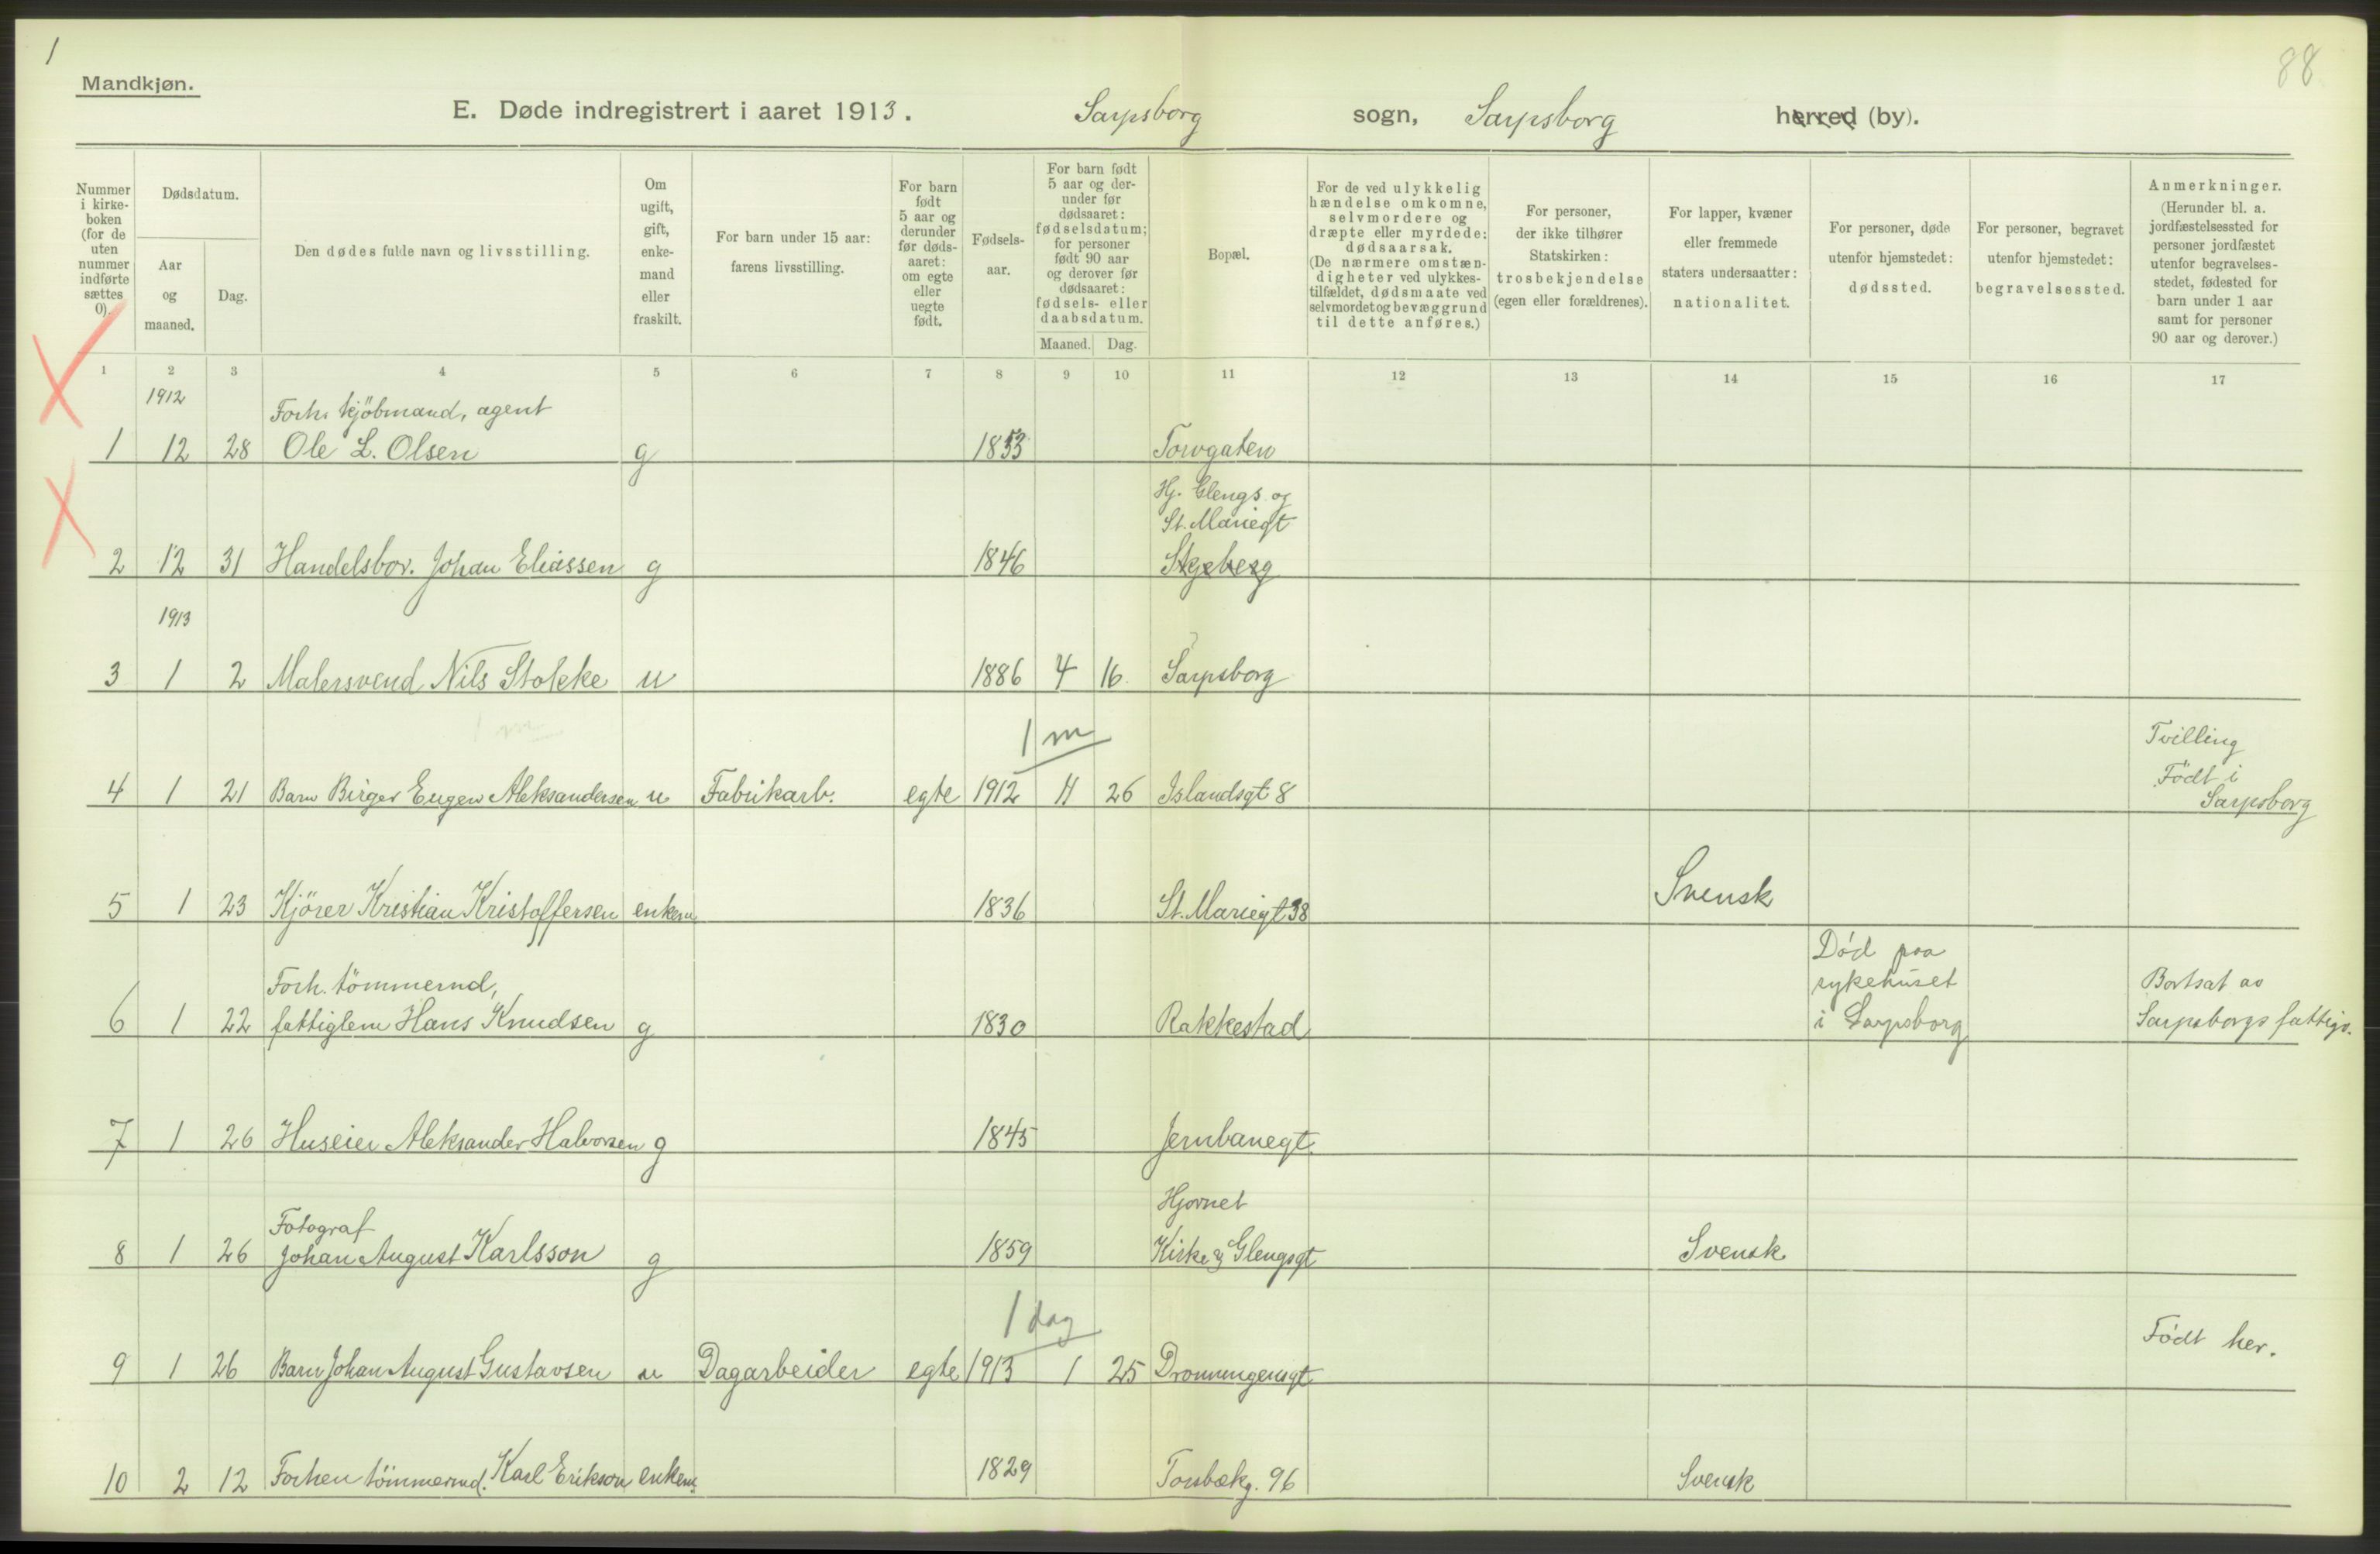 1
88
Mandkjøn.
E. Døde indregistrert i aaret 1913. Sarpsborg sogn, Sarpsborg herred (by).
Nummer i kirke-boken (for de uten nummer indførte sættes 0).
Dødsdatum.
Aar og maaned.
Dag.
Den dødes fulde navn og livsstilling.
Om ugift, gift, enke-mand eller fraskilt.
For barn under 15 aar: farens livsstilling.
For barn født 5 aar og derunder før døds-aaret: om egte eller uegte født.
Fødsels-aar.
For barn født 5 aar og der-under før dødsaaret: fødselsdatum; for personer født 90 aar og derover før dødsaaret: fødsels- eller daabsdatum.
Maaned. Dag.
Bopæl.
For de ved ulykkelig hændelse omkomne, selvmordere og dræpte eller myrdede: dødsaarsak. (De nærmere omstæn-digheter ved ulykkes-tilfældet, dødsmaate ved selvmordet og bevæggrund til dette anføres.)
For personer, der ikke tilhører Statskirken: trosbekjendelse (egen eller forældrenes).
For lapper, kvæner eller fremmede staters undersaatter: nationalitet.
For personer, døde utenfor hjemstedet: dødssted.
For personer, begravet utenfor hjemstedet: begravelsessted.
Anmerkninger. (Herunder bl. a. jordfæstelsessted for personer jordfæstet utenfor begravelses-stedet, fødested for barn under 1 aar samt for personer 90 aar og derover.)
1 2 3 4 5 6 7 8 9 10 11 12 13 14 15 16 17
1912
Forh. kjöbmand, agent
1 12 28 Ole L. Olsen g 1853 Torvgaten
Hj. Glengs og
St. Mariegt
2 12 31 Handelsbor. Johan Eliassen g 1846 Skjeberg
1913
3 1 2 Malersvend Nils Stokke u 1886 4 16. Sarpsborg
1 m
1 m
Tvilling
Födt i
4 1 21 Barn Birger Eugen Aleksandersen u Fabrikarb. egte 1912 11 26 Islandsgt 8 Sarpsborg
5 1 23 Kjörer Kristian Kristoffersen enkem 1836 St. Mariegt 38 Svensk
Forh. tömmermd, Död paa
sykehuset Bortsat av
6 1 22 fattiglem Hans Knudsen g 1830 Rakkestad i Sarpsborg Sarpsborgs fattigv.
7 1 26 Huseier Aleksander Halvorsen g 1845 Jernbanegt.
Hjørnet
Fotograf
8 1 26 Johan August Karlsson g 1859 Kirke og Glengsgt Svensk
1 dag
Födt her.
9 1 26 Barn Johan August Gustavsen u Dagarbeider egte 1913 1 25 Dronningensgt
10 2 12 Forhen tömmermd. Karl Erikson enkem. 1829 Torsbækg. 96 Svensk